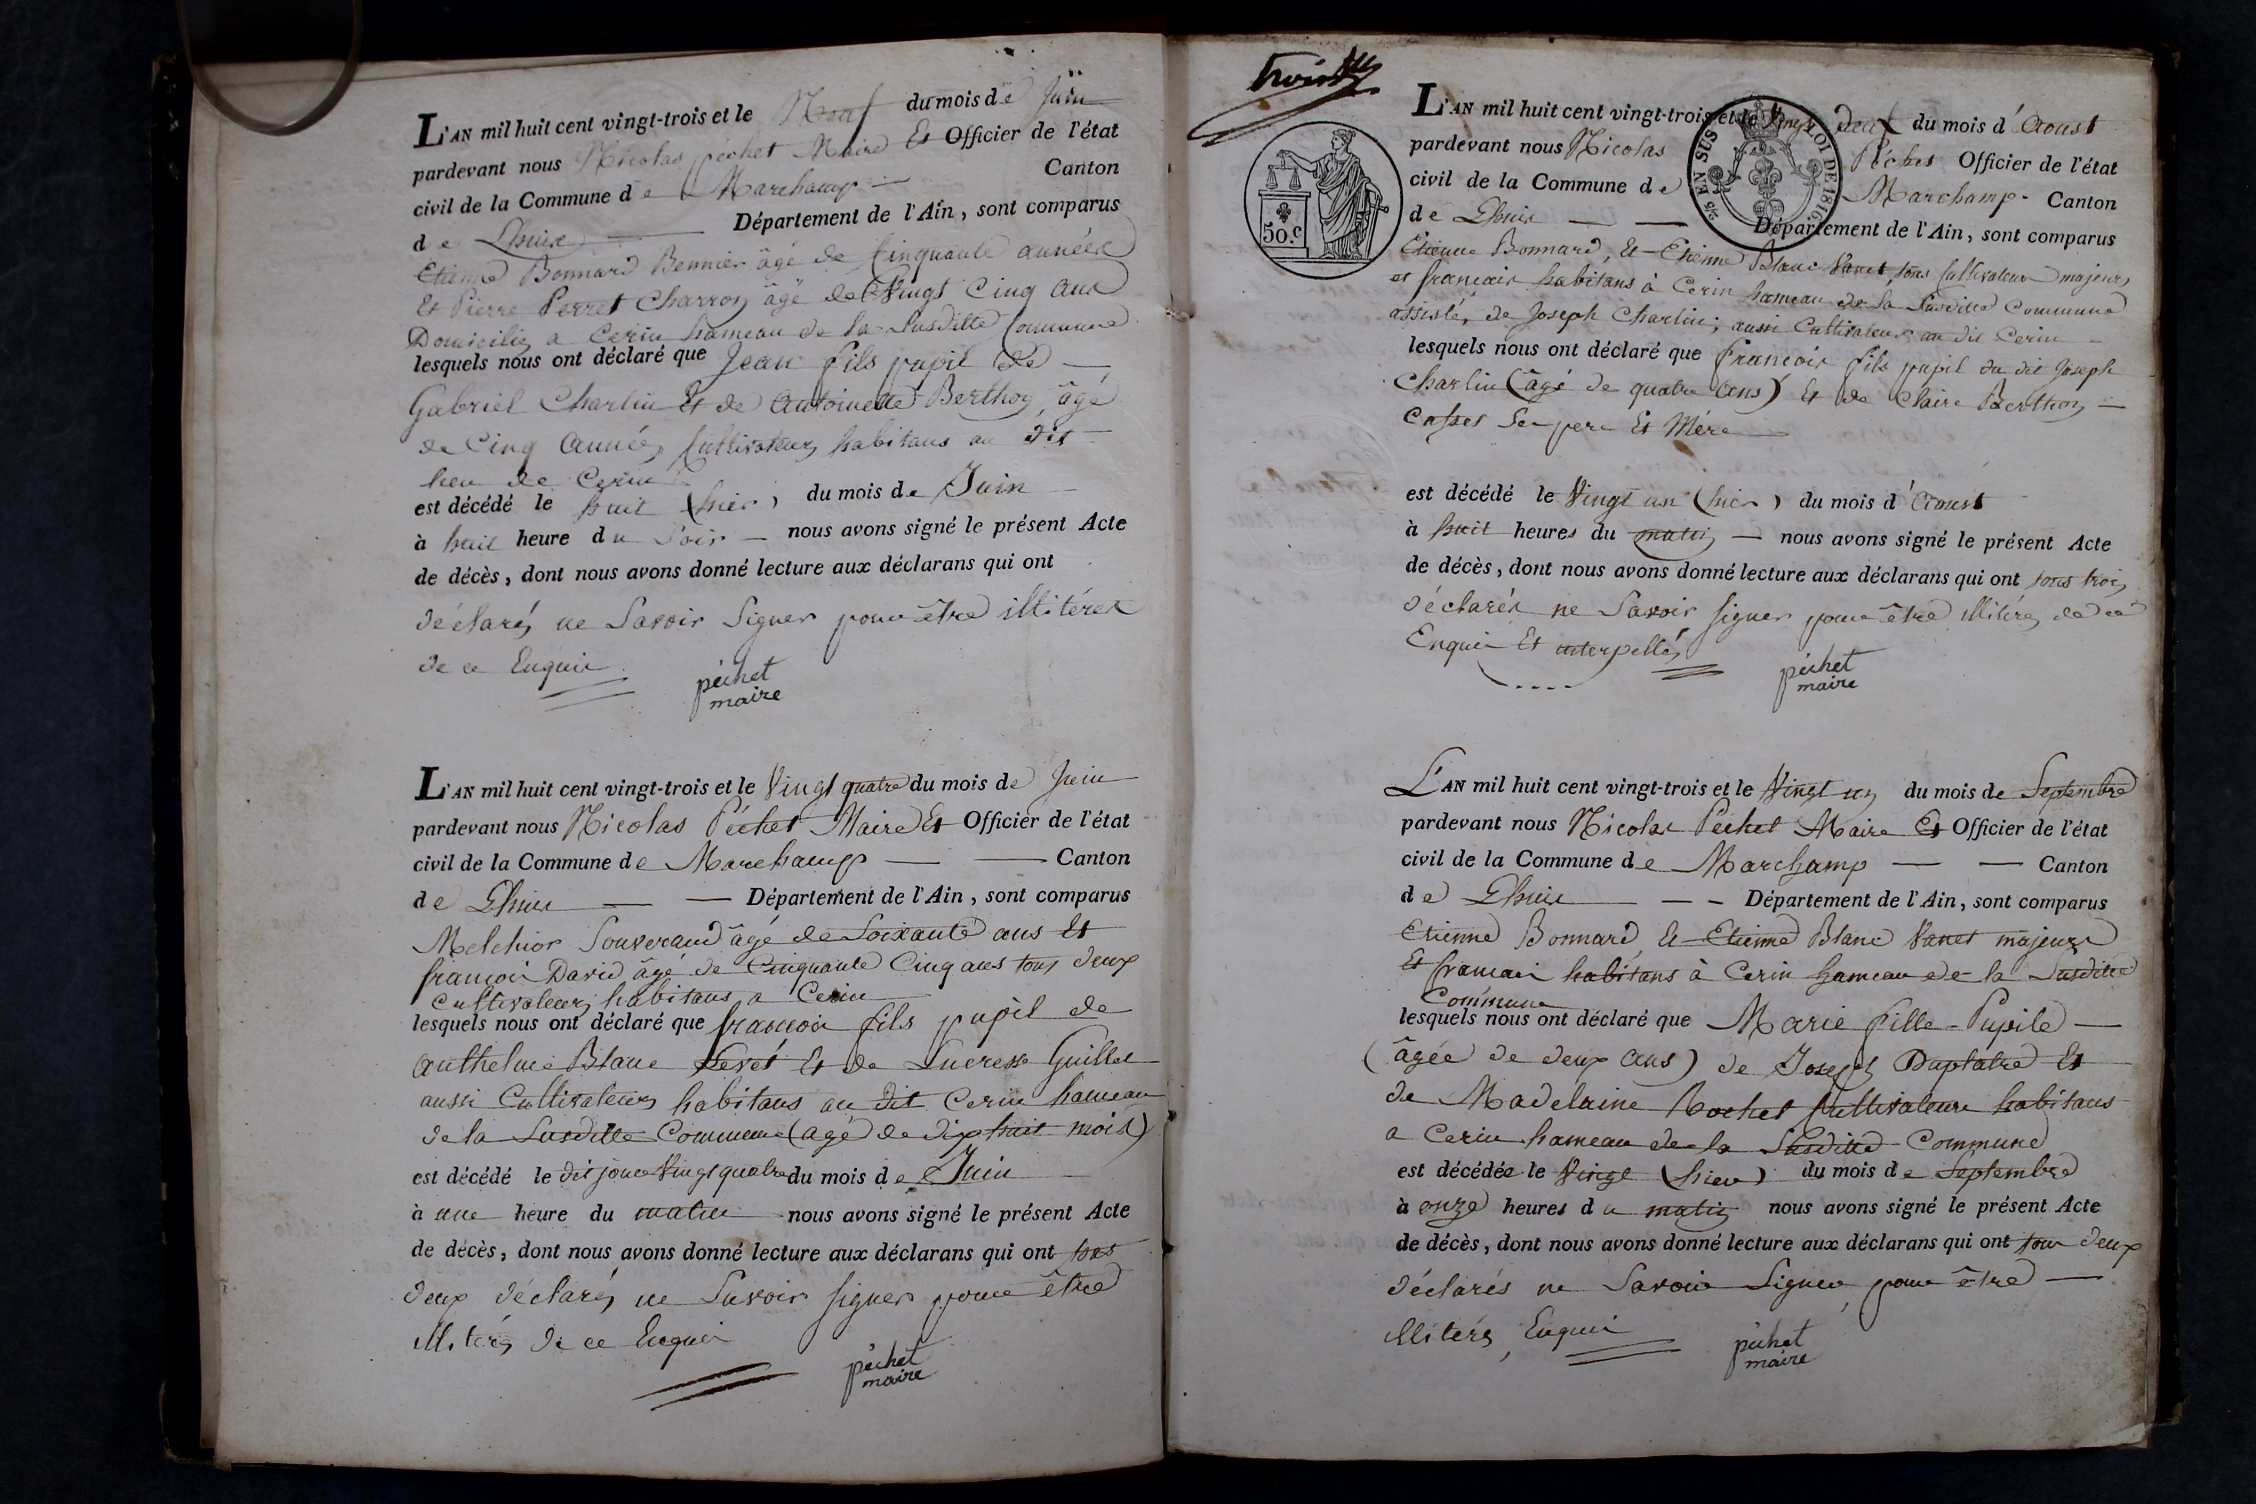 L'AN mil huit cent vingt-trois et le Neuf du mois de Juin
pardevant nous Nicolas péchet Maire Et Officier de l'état
civil de la Commune de Marchamp — Canton
de Lhuis — Département de l'Ain, sont comparus
Etienne Bonnard Bennier âgé de Cinquante années
Et Pierre Perret Charron âgé de Vingt Cinq ans
Domiciliés a Cerin hameau de la Susditte Commune
lesquels nous ont déclaré que Jean fils pupil de —
Gabriel Charlin Et de Antoinette Berthon, âgé
de Cinq années Cultivateurs habitans au dit
lieu de Cerin
est décédé le huit (hier) du mois de Juin
à huit heure du Soir — nous avons signé le présent Acte
de décès, dont nous avons donné lecture aux déclarans qui ont
déclarés ne Savoir Signer pour être illitérés
de ce Enquis
péchet
maire
L'AN mil huit cent vingt-trois et le Vingt quatre du mois de Juin
pardevant nous Nicolas Péchet Maire Et Officier de l'état
civil de la Commune de Marchamp — — Canton
de Lhuis — — Département de l'Ain, sont comparus
Melchior Souverand âgé de Soixante ans Et
françois David âgé de Cinquante Cinq ans tous deux
Cultivateurs habitans a Cerin
lesquels nous ont déclaré que françois fils pupil de
Anthelme Blanc Levet Et de Lucresse Guillet
aussi Cultivateurs habitans au dit Cerin hameau
de la Susditte Commune (agé de dix huit mois)
est décédé le dit jour Vingt quatre du mois de Juin
à une heure du matin nous avons signé le présent Acte
de décès, dont nous avons donné lecture aux déclarans qui ont tous
deux déclarés ne Savoir signer pour être
illiterés de ce Enquis
péchet
maire
trois
50.C
EN SUS
LOI DE 1816.
L'AN mil huit cent vingt-trois et le Vingt deux du mois d'Aoust
pardevant nous Nicolas Péchet Officier de l'état
civil de la Commune de Marchamp - Canton
de Lhuis — — Département de l'Ain, sont comparus
Etienne Bonnard, Et Etienne Blanc Vanet, tous Cultivateurs majeurs
et francais habitans à Cerin hameau de la Susditte Commune
assistés, de Joseph Charlin, aussi Cultivateur au dit Cerin —
lesquels nous ont déclaré que francois fils pupil du dit Joseph
Charlin (âgé de quatre ans) Et de Claire Berthon —
Ses pere Et Mére
est décédé le Vingt un (hier) du mois d'Aoust
à huit heures du matin — nous avons signé le présent Acte
de décès, dont nous avons donné lecture aux déclarans qui ont tous trois
déclarés ne Savoir signer pour être illitérés de ce
Enquis Et interpellés
péchet
maire
L'AN mil huit cent vingt-trois et le Vingt un du mois de Septembre
pardevant nous Nicolas Péchet Maire Et Officier de l'état
civil de la Commune de Marchamp — — Canton
de Lhuis — — Département de l'Ain, sont comparus
Etienne Bonnard, Et Etienne Blanc Vanet majeurs
Et francais habitans à Cerin hameau de la Susditte
Commune
lesquels nous ont déclaré que Marie fille Pupile —
(âgée de deux ans) de Joseph Duplatre Et
de Madelaine Rochet Cultivateurs habitans
a Cerin hameau de la Susditte Commune
est décédée le Vingt (hier) du mois de Septembre
à onze heures du matin nous avons signé le présent Acte
de décès, dont nous avons donné lecture aux déclarans qui ont tous deux
déclarés ne Savoir Signer pour être —
illiterés, Enquis
péchet
maire